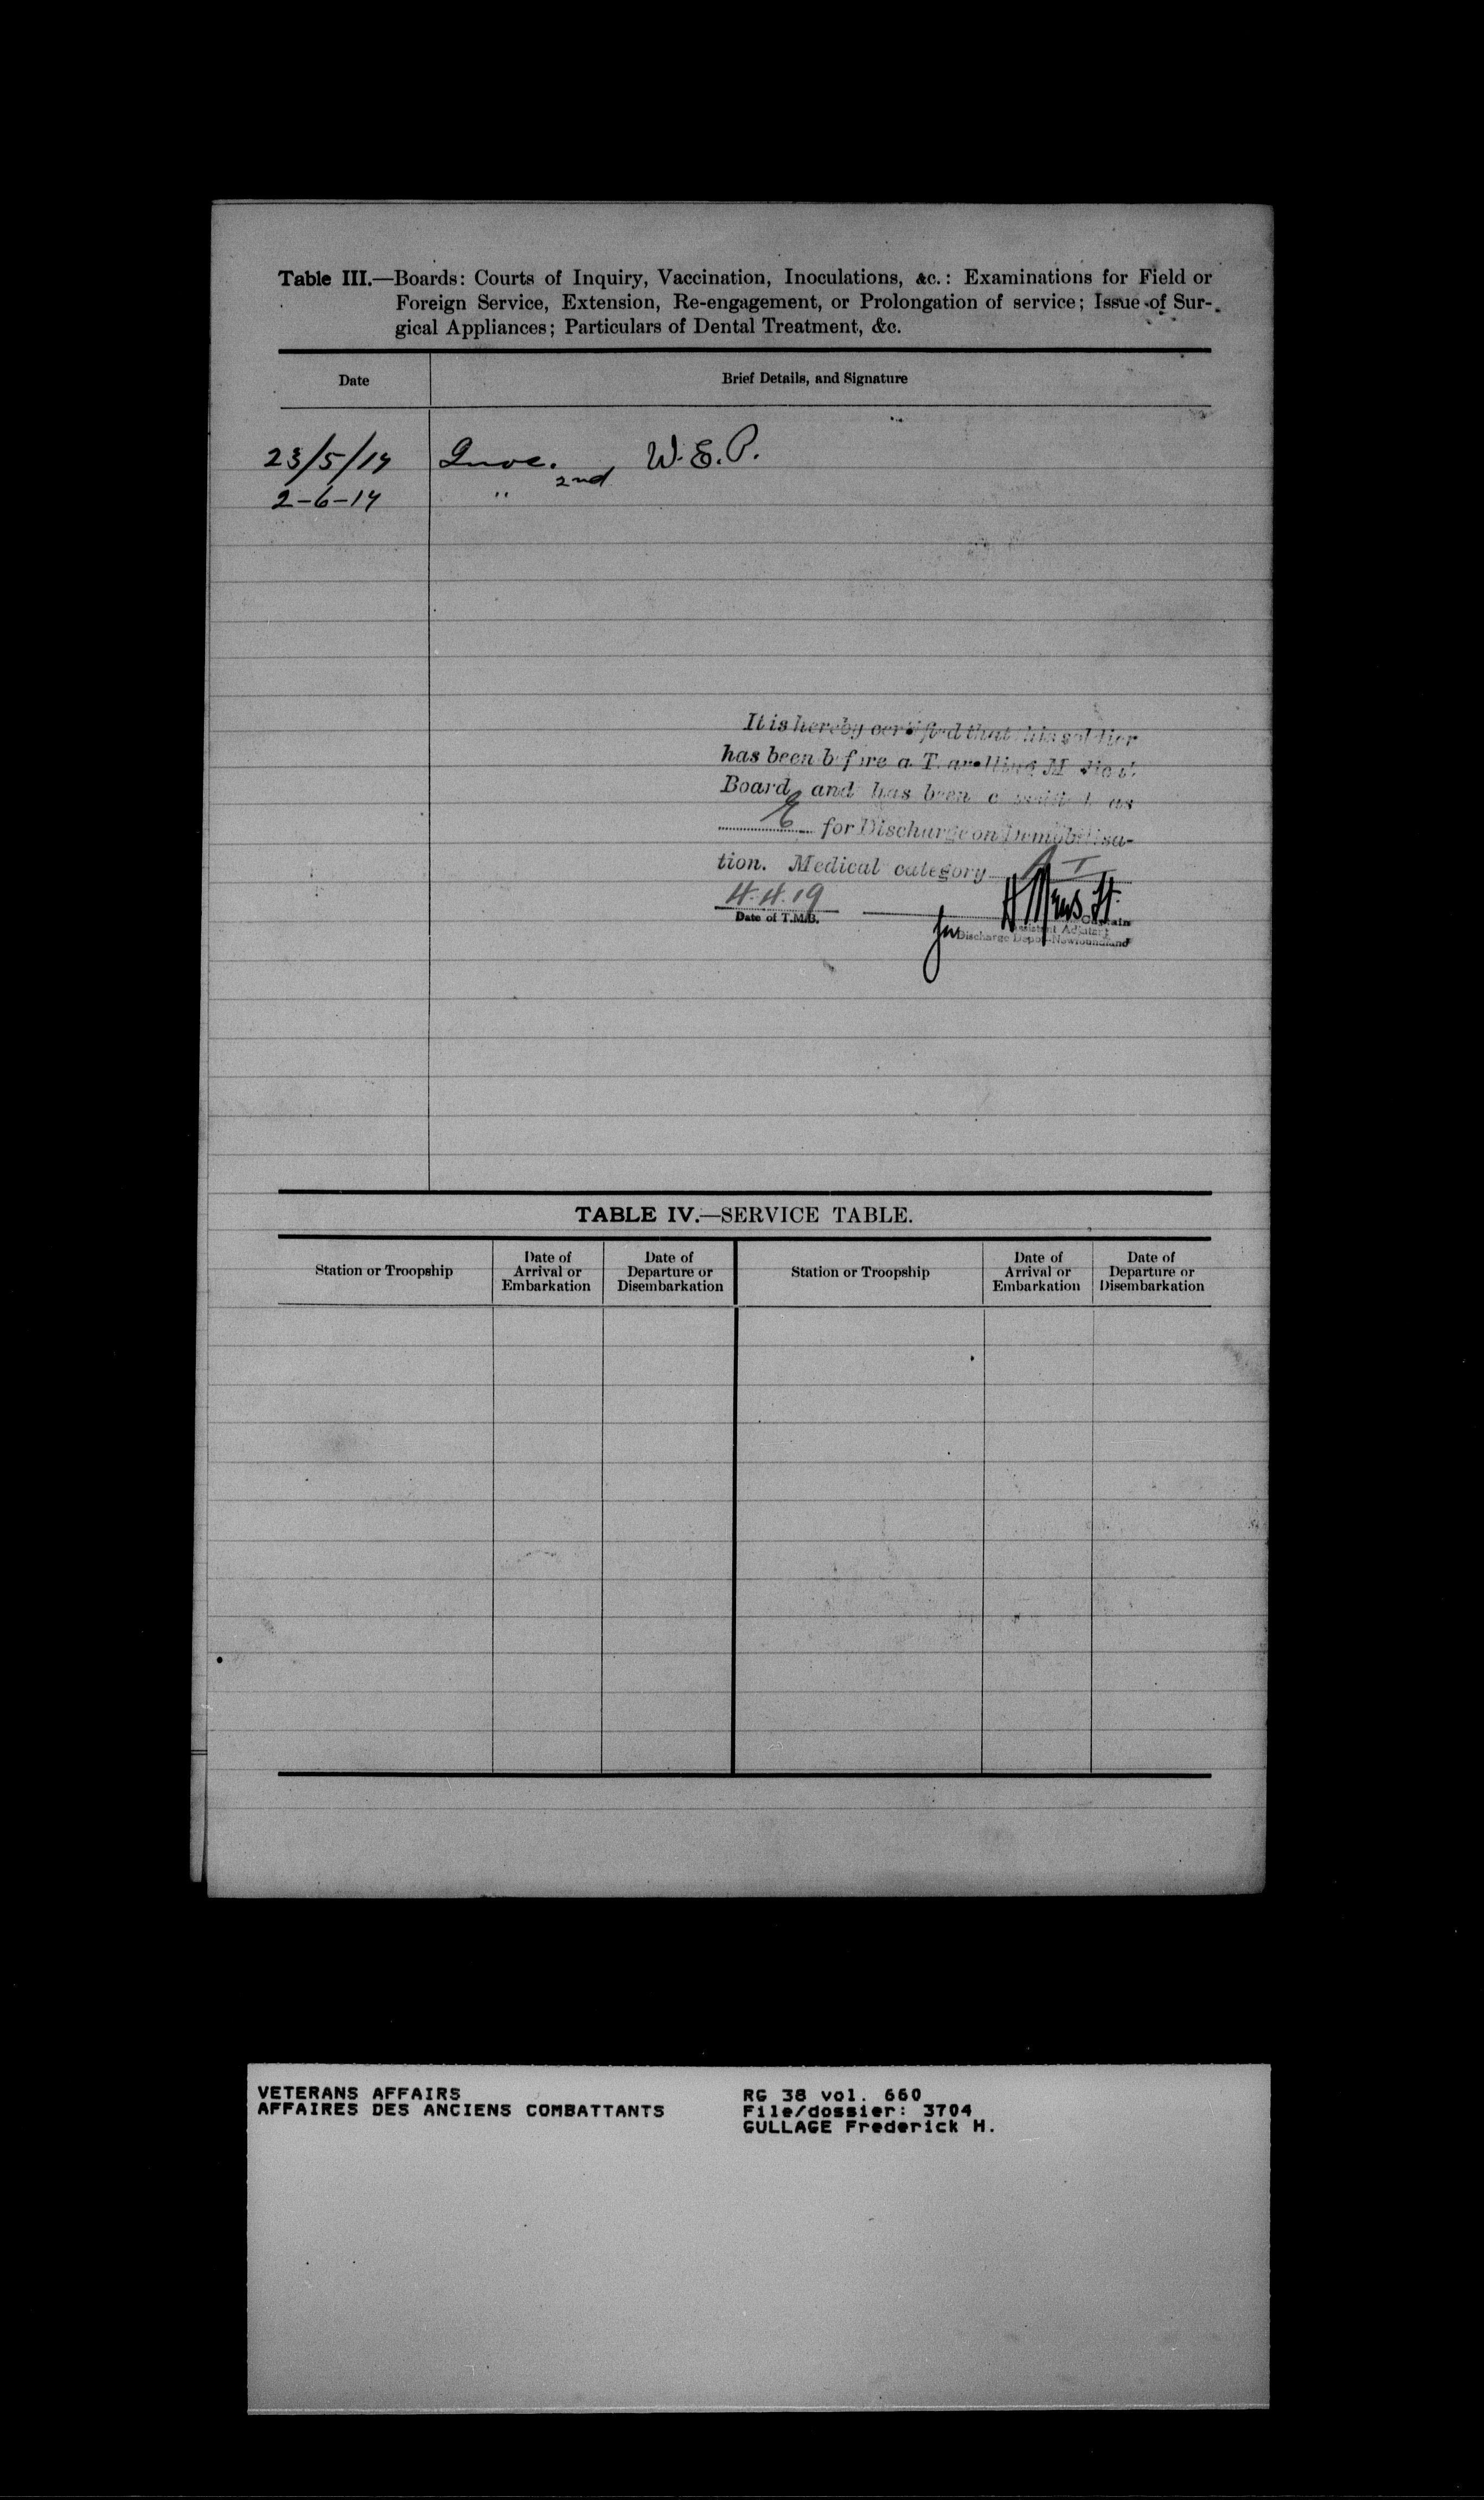 Table III.—Boards: Courts of Inquiry, Vaccination, Inoculations, &c.: Examinations for Field or
Foreign Service, Extension, Re-engagement, or Prolongation of service; Issue of Sur-
gical Appliances; Particulars of Dental Treatment, &c.
Date
Brief Details, and Signature
23/5/17 Inoc. W.E.P.
2-6-17 " 2nd
It is hereby certified that this soldier
has been before a Travelling Medical
Board and has been classified as
E for Discharge on Demobilisa-
tion. Medical category A I
4.4.19
Date of T.M.B.
for
Captain
Assistant Adjutant
Discharge Depot—Newfoundland
TABLE IV.—SERVICE TABLE.
Station or Troopship
Date of
Arrival or
Embarkation
Date of
Departure or
Disembarkation
Station or Troopship
Date of
Arrival or
Embarkation
Date of
Departure or
Disembarkation
VETERANS AFFAIRS
AFFAIRES DES ANCIENS COMBATTANTS
RG 38 vol. 660
File/dossier: 3704
GULLAGE Frederick H.